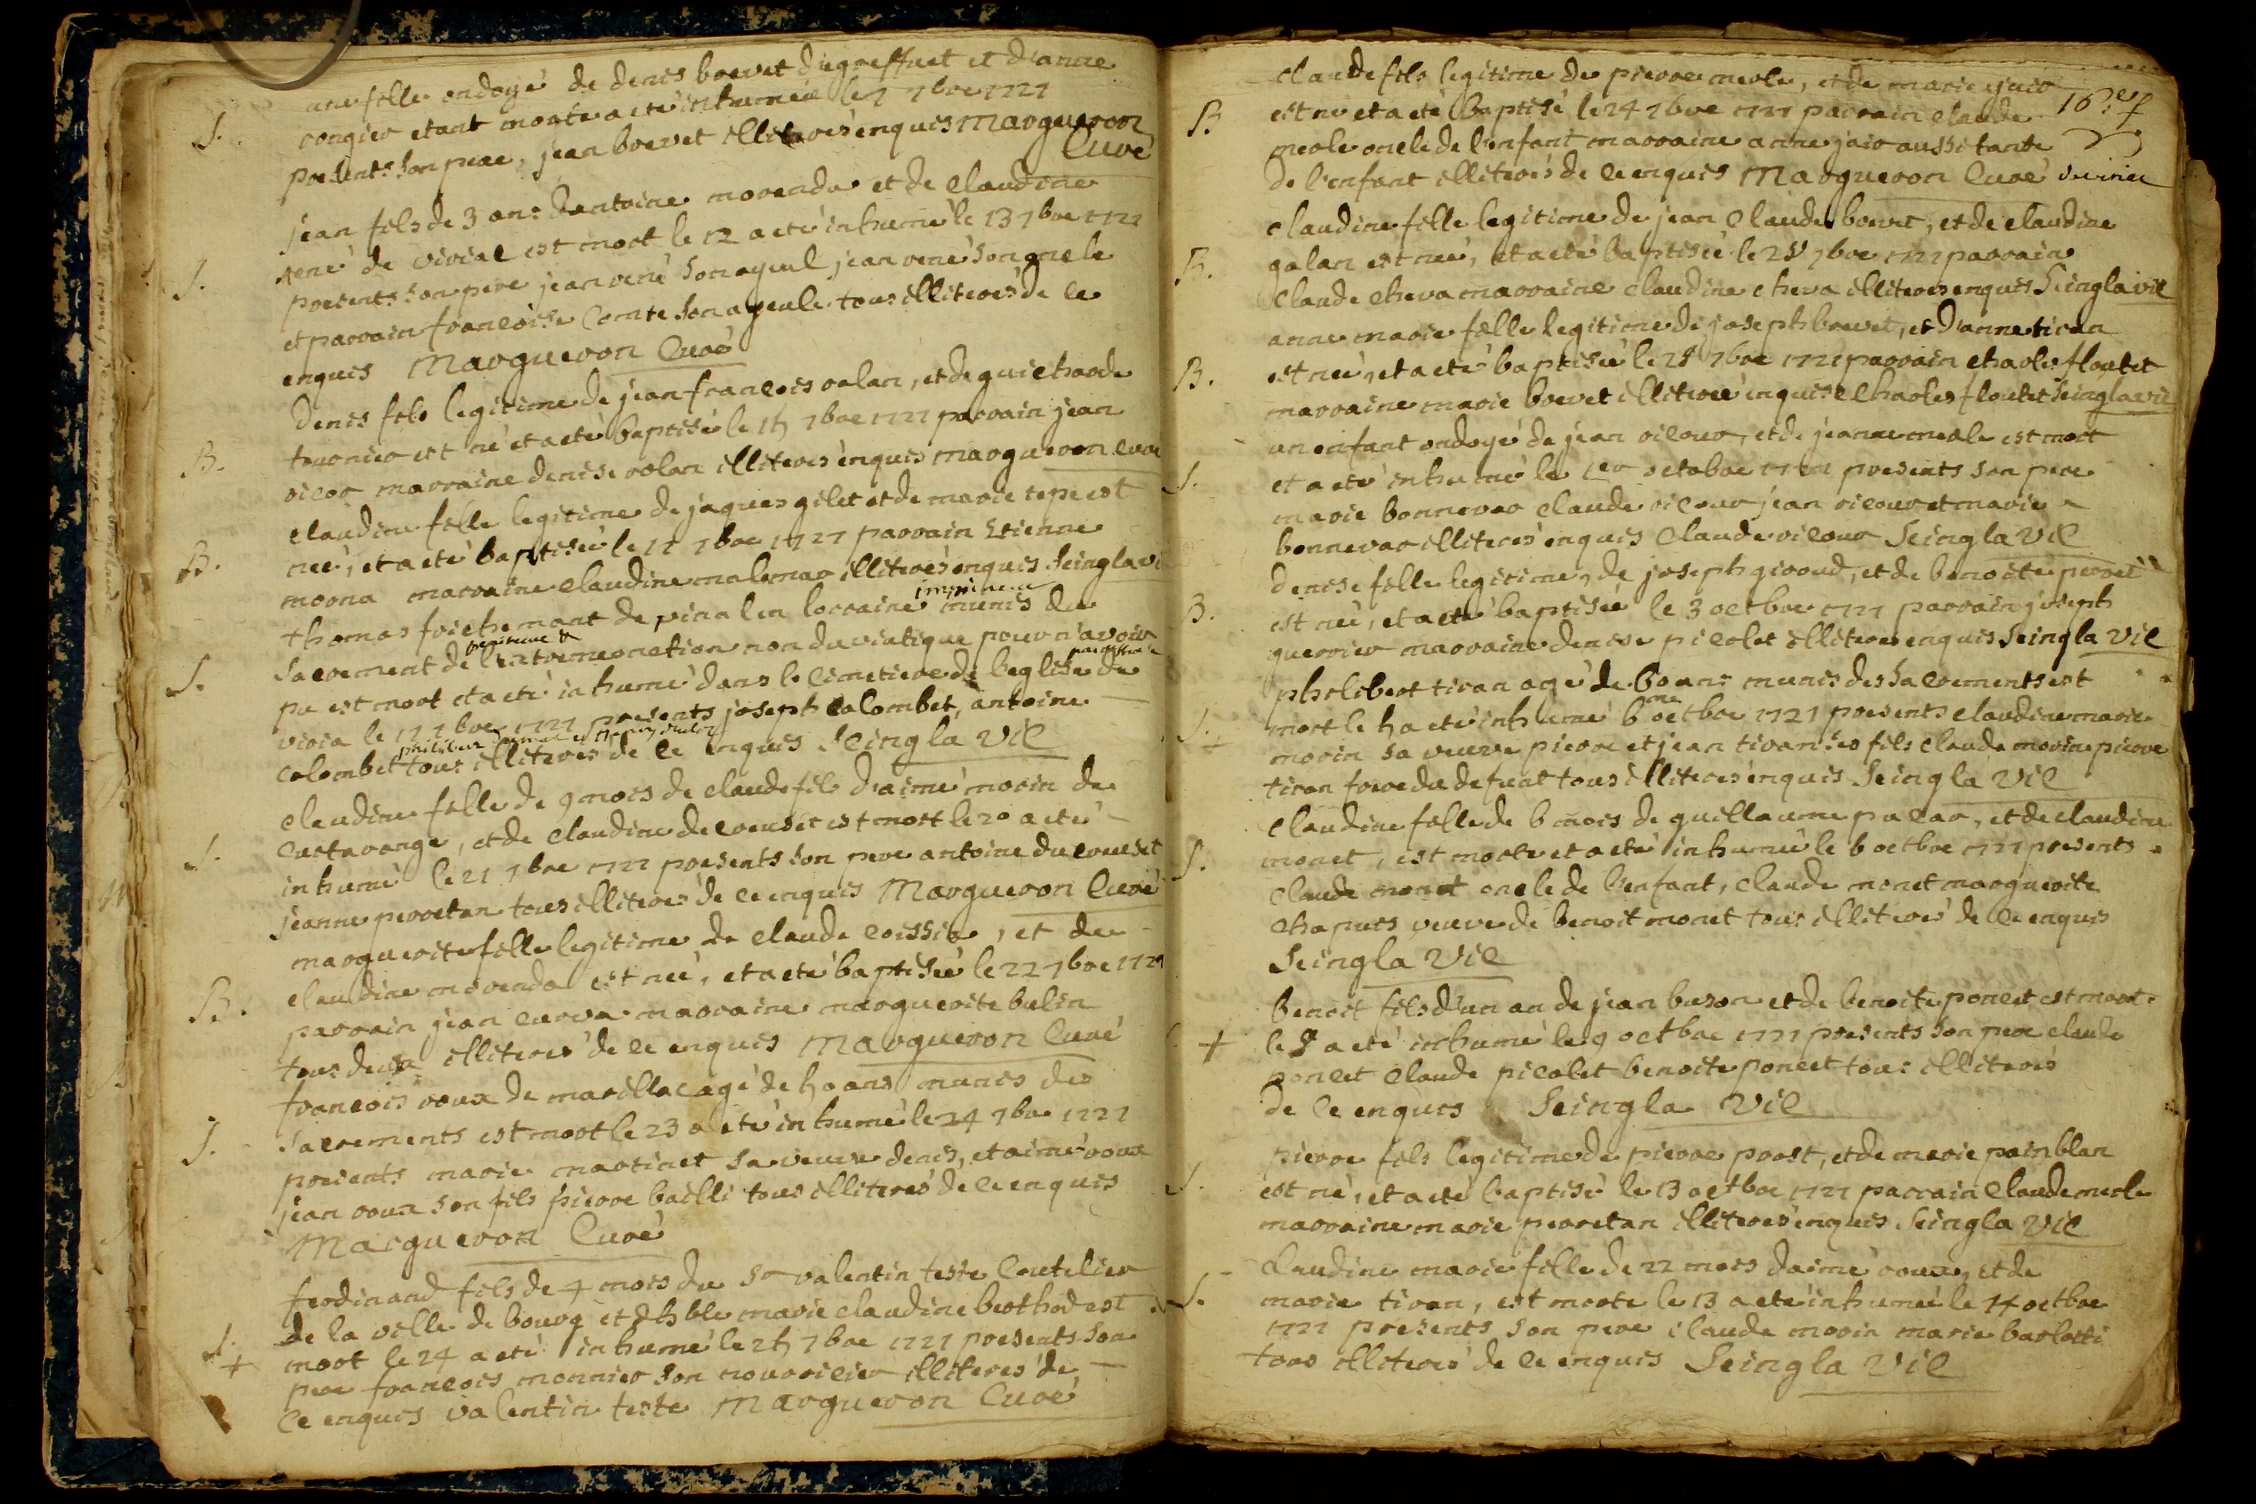 une fille ondoyé de denis brevet d'egreffuet et d'anne
S. rongier etant morte a eté inhumée le 7 7bre 1727
presents son pere, jean brevet illiterés enquis Margueron
Curé
jean fils de 3 ans d'antoine morenda et de claudine
S. rené de viviae est mort le 12 a eté inhumé le 13 7bre 1727
presents son pere jean rené son ayeul jean rené son oncle
et parrain francoise Comte son ayeule tous illiterés de ce
enquis Margueron Curé
denis fils legitime de jean francois rolan, et de guicharde
B. tournier est né et a eté baptisé le 15 7bre 1727 parrain jean
ricor marraine denise rolan illiterés enquis margueron curé
claudine fille legitime de jaques gilet et de marie tepe est
B. née, et a eté baptisée le 17 7bre 1727 parrain Etienne
morna marraine claudine malamar illiterés enquis Seingla vi
thomas frichemant de pinal en lorraine munis du
Sacrement de l'extremeonction non du viatique pour n'avoir
S. pu est mort et a eté inhumé dans le cimetiere de l'eglise de
viria le 17 7bre 1727 presents joseph colombet, antoine
colombet tous illiterés de ce enquis Seingla Vic
claudine fille de 9 mois de claude fils d'aimé morin de
Curtarange, et de claudine decreuset est mort le 20 a eté
S. inhumé le 21 7bre 1727 presents son pere antoine du creuset
jeanne perretan tous illiterés de ce enquis Margueron Curé
marguerite fille legitime de claude coissia, et de
claudine morenda est née, et a eté baptisée le 22 7bre 1727
B. parrain jean curva marraine marguerite belin
tous deux illiterés de ce enquis Margueron Curé
francois roux de marillac agé de 50 ans munis des
S. Sacrements est mort le 23 a eté inhumé le 24 7bre 1727
presents marie martinet sa veuve denis, et aimé roux
jean roux son fils pierre bailli tous illiterés de ce enquis
Margueron Curé
ferdinand fils de 4 mois du Sr valentin teste Coutelier
de la ville de bourg et d'hble marie claudine berthod est
S. mort le 24 a eté inhumé le 25 7bre 1727 presents son
+ pere francois monnier son nourricier illiterés de
ce enquis valentin teste Margueron Curé
claude fils legitime de pierre merle, et de marie juir
B. est né et a eté baptisé le 24 7bre 1727 parrain claude
16e f
merle oncle de l'enfant marraine anne jair aussi tante
de l'enfant illiterés de ce enquis Margueron Curé
claudine fille legitime de jean claude brevet, et de claudine
B. galan est née, et a eté baptisée le 28 7bre 1727 parrain
Claude cheva marraine claudine cheva illiterés enquis Seingla vic
anne marie fille legitime de joseph brevet, et d'anne tiran
B. est née, et a eté baptisée le 28 7bre 1727 parrain charles floutet
marraine marie brevet illiterée enquise Charles floutet Seingla vic
un enfant ondoyé de jean ricour, et de jeanne merle est mort
S. et a eté inhumé le 1er octobre 1727 presents son pere
marie bonnevar claude ricour jean ricour et marie
bonnevar illiterés enquis Claude ricour Seingla Vic
denise fille legitime, de joseph giroud, et de benoite perret
B. est née, et a eté baptisée le 3 octbre 1727 parrain joseph
guerrier marraine denise picolet illiterés enquis Seingla Vic
philibert tiran agé de 60 ans munis des Sacrements est
S. mort le 5 a eté inhumé 6me octbre 1727 presents claudine marie
+ morin sa veuve pierre et jean tiran ses fils claude morin pierre
tiran frere du defunt tous illiterés enquis Seingla Vic
Claudine fille de 6 mois de guillaume pacar, et de claudine
S. monet, est morte et a eté inhumé le 6 octbre 1727 presents
Claude monet oncle de l'enfant, Claude monet marguerite
chapuis veuve de benoit monet tous illiterés de ce enquis
Seingla Vic
Benoit fils d'un an de jean buson et de benoite poncet est mort
+ le 8 a eté inhumé le 9 octbre 1727 presents son pere claude
poncet Claude picolet benoite poncet tous illiterés
de ce enquis Seingla Vic
pierre fils legitime de pierre prost, et de marie painblan
est né, et a eté baptisé le 13 octbre 1727 parrain Claude merle
marraine marie perretan illiterés enquis Seingla Vic
Claudine marie fille de 22 mois d'aimé roux, et de
S. marie tiran, est morte le 13 a eté inhumée le 14 octbre
1727 presents son pere claude morin marie barlotti
tous illiterés de ce enquis Seingla Vic